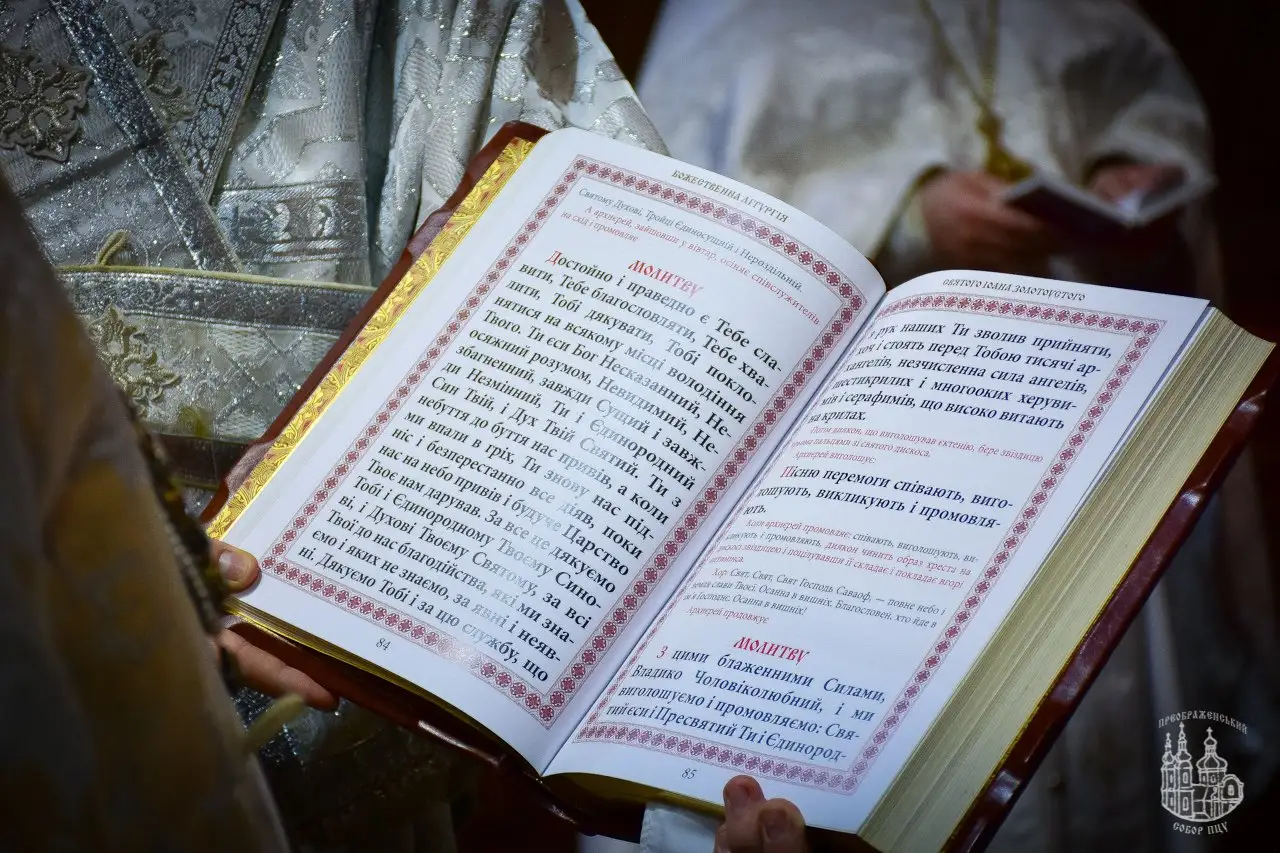 БОЖЕСТВЕННА ЛІТУРГІЯ
Святому Духові, Тройці Єдиносущній і Нероздільній.
А архиєрей, зайшовши у вівтар, осіняє співслужителів
на схід і промовляє
МОЛИТВУ
Достойно і праведно є Тебе сла-
вити, Тебе благословляти, Тебе хва-
лити, Тобі дякувати, Тобі покло-
нятися на всякому місці володіння
Твого. Ти єси Бог Несказанний, Не-
осяжний розумом, Невидимий, Не-
збагненний, завжди Сущий і завж-
ди Незмінний, Ти і Єдинородний
Син Твій, і Дух Твій Святий. Ти з
небуття до буття нас привів, а коли
ми впали в гріх, Ти знову нас під-
ніс і безперестанно все діяв, поки
нас на небо привів і будуче Царство
Твоє нам дарував. За все це дякуємо
Тобі і Єдинородному Твоєму Сино-
ві, і Духові Твоєму Святому, за всі
Твої до нас благодійства, які ми зна-
ємо і яких не знаємо, за явні і неяв-
ні. Дякуємо Тобі і за цю службу, що
84
СВЯТОГО ІОАНА ЗОЛОТОУСТОГО
рук наших Ти зволив прийняти,
хоч і стоять перед Тобою тисячі ар-
хангелів, незчисленна сила ангелів,
шестикрилих і многооких херуви-
мів і серафимів, що високо витають
на крилах.
Потім диякон, що виголошував єктенію, бере звіздицю
пальцями зі святого дискоса.
Архиєрей виголошує:
Пісню перемоги співають, виго-
лошують, викликують і промовля-
ють.
Коли архиєрей промовляє: співають, виголошують, ви-
кликують і промовляють, диякон чинить образ хреста на
дискосі звіздицею і поцілувавши її складає і покладає вгорі
антиминса.
Хор: Свят, Свят, Свят Господь Саваоф, — повне небо і
земля слави Твоєї. Осанна в вишніх, Благословен, хто йде в
ім'я Господнє. Осанна в вишніх!
Архиєрей продовжує
МОЛИТВУ
З цими блаженними Силами,
Владико Чоловіколюбний, і ми
виголошуємо і промовляємо: Свя-
тий єси і Пресвятий Ти і Єдинород-
85
ПРЕОБРАЖЕНСЬКИЙ
СОБОР ПЦУ